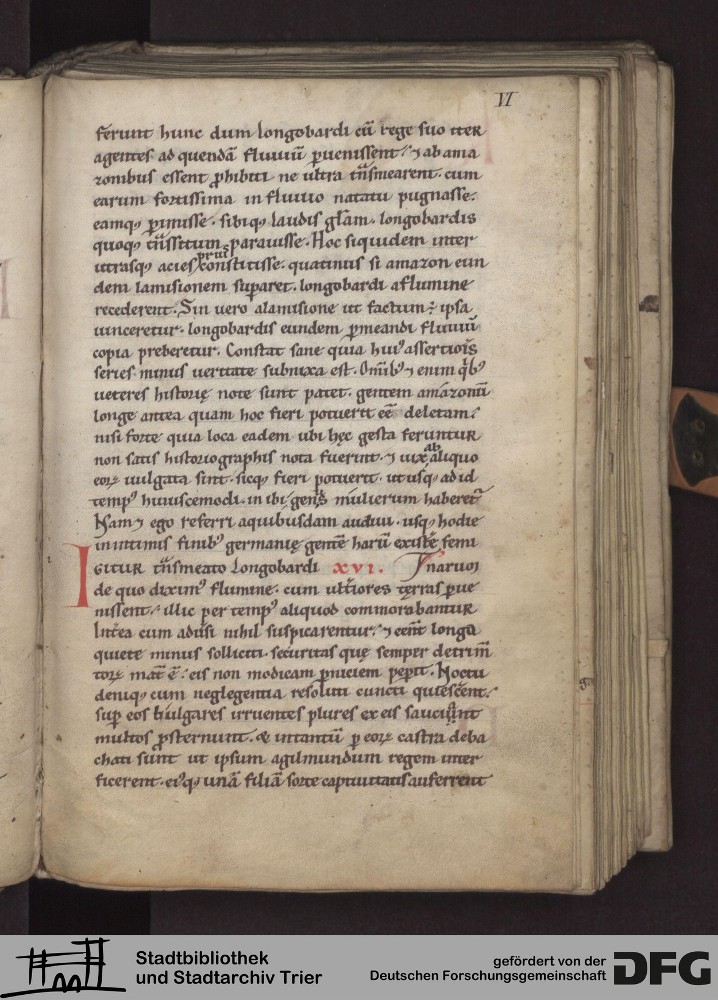 VI
ferunt hunc dum longobardi cū rege suo iter
agentes ad quendā fluuiū ꝑuenissent. ⁊ ab ama
zonibus essent ꝓhibiti ne ultra tͣnsmearent. cum
earum fortissima in fluuio natatu pugnasse.
eamqꝫ ꝑimisse. sibiqꝫ laudis głam. longobardis
quoqꝫ tͣnsitum parauisse. Hoc siquidem inter
utrasqꝫ acies prius constitisse. quatinus si amazon eun
dem lamisionem suꝑaret. longobardi a flumine
recederent. Sin uero a lamisione ut factum ÷ ipsa
uinceretur. longobardis eundem ꝑmeandi fluuiū
copia preberetur. Constat sane quia huiꝰ assertiōis
series minus ueritate subnixa est. Omībꝫ enim qͥbꝫ
ueteres historię note sunt patet. gentem amazonū
longe antea quam hoc fieri potuerit eē deletam.
nisi forte quia loca eadem ubi hęc gesta feruntur
non satis historiographis nota fuerint. ⁊ uix ab aliquo
eoꝝ uulgata sint. sicqꝫ fieri potuerit. ut usqꝫ ad id
tempꝰ huiuscemodi. inibi genꝰ mulierum haberet̄
Nam ⁊ ego referri a quibusdam audiui. usqꝫ hodie
in intimis finibꝫ germanię gentē harū existēe femi
GITUR tͣnsmeato longobardi xvi. narum
de quo diximꝰ flumine. cum ult̄iores tęrras ꝑue
nissent. illic per tempꝰ aliquod commorabantur
Int̄ea cum adūsi nihil suspicarentur. ⁊ cēnt longa
quiete minus solliciti. securitas quę semper detrim̄
toꝝ mat̄ ē. eis non modicam ꝑniciem peꝑit. Noctu
deniqꝫ cum neglegentia resoluti cuncti quiescent.
suꝑ eos bulgares irruentes plures ex eis sauciunt
multos ꝓsternunt. & in tantū ꝑ eoꝝ castra deba
chati sunt ut ipsum agilmundum regem inter
ficerent. eiꝰqꝫ unā filiā sorte captiuitatis auferrent
Stadtbibliothek
und Stadtarchiv Trier
gefördert von der
Deutschen Forschungsgemeinschaft
DFG